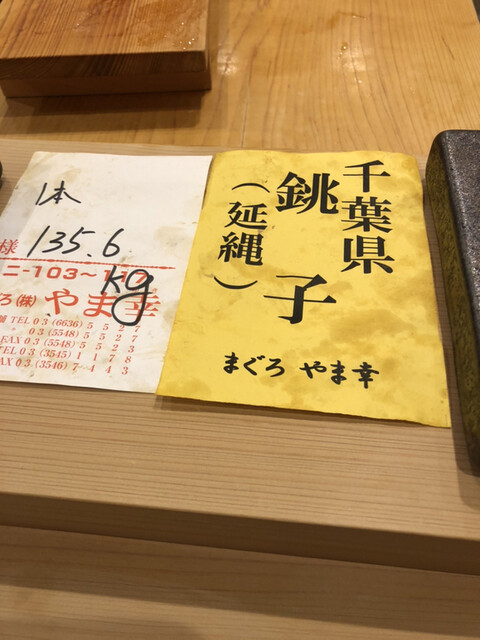 1本
様 135.6
kg
ニ-103~117
ろ(株) やま幸
TEL 03 (6636) 5 5 2 7
〃 03 (5548) 5 5 2 7
FAX 03 (5548) 5 5 2 3
TEL 03 (3545) 1 1 7 8
FAX 03 (3546) 7 4 4 3
千葉県
銚子
(延縄)
まぐろ やま幸